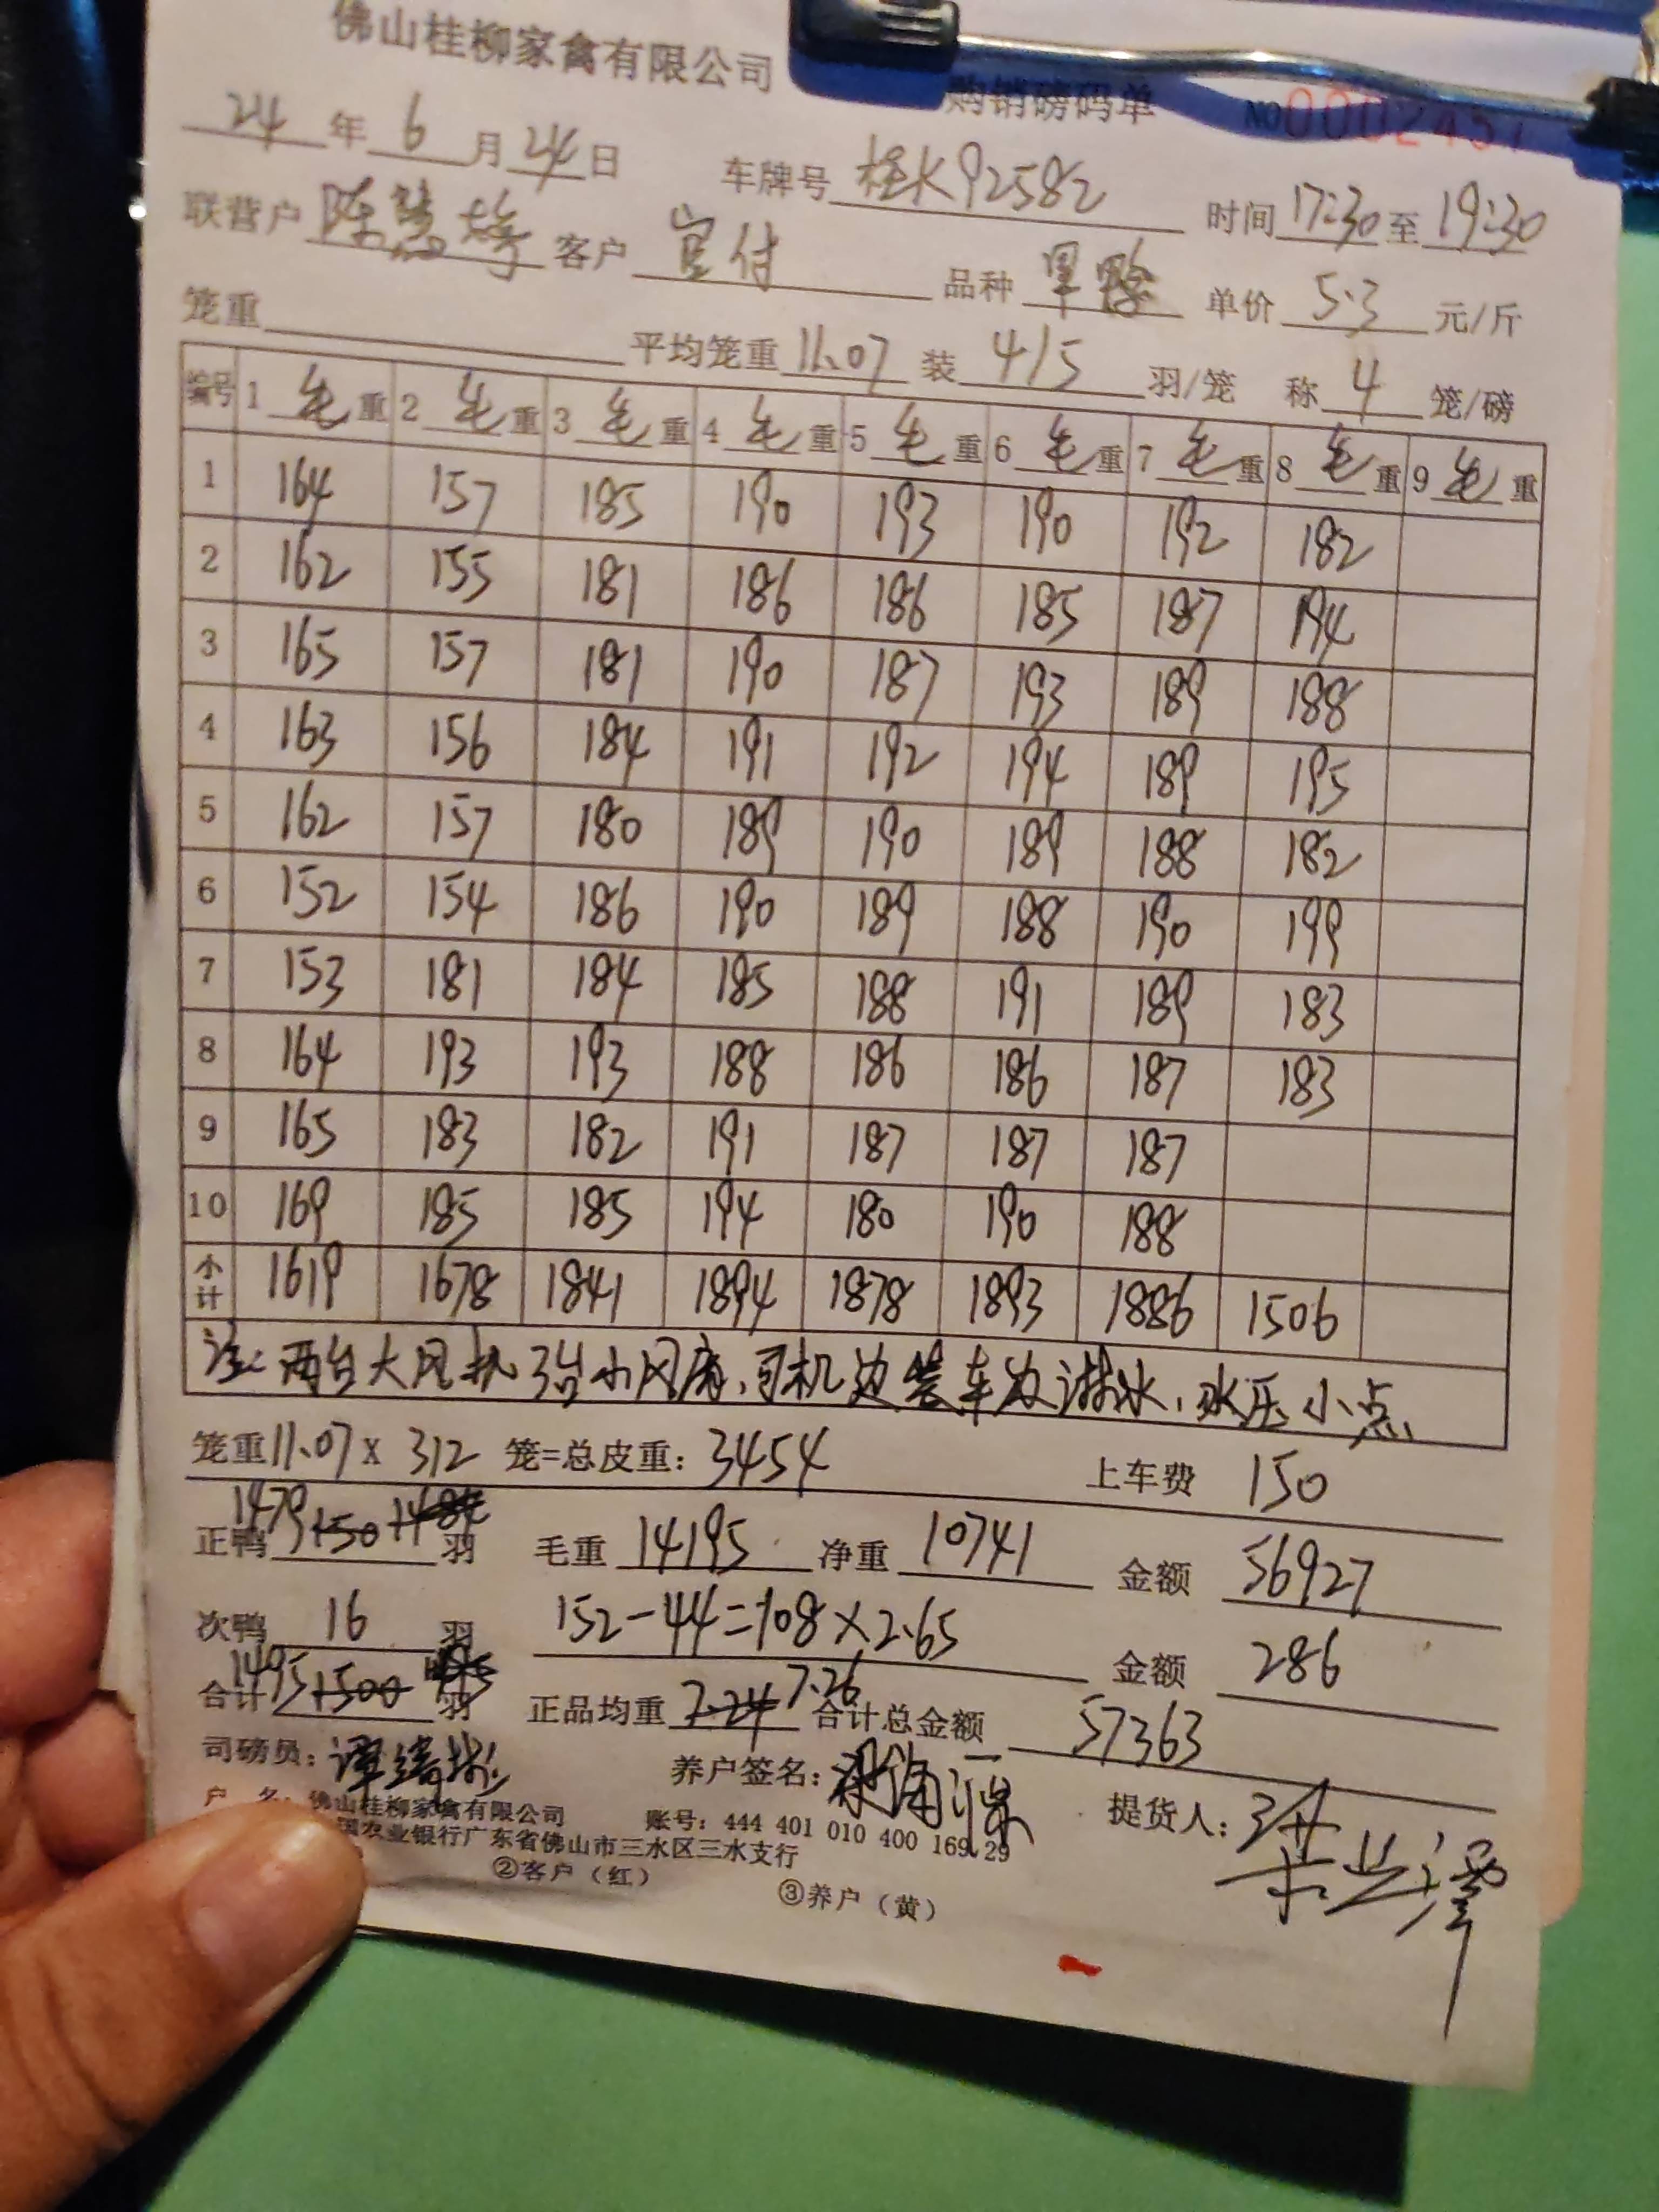 佛山桂柳家禽有限公司
购销磅码单 NO
24年6月24日 车牌号 桂K92582 时间17:30至19:30
联营户 陈 客户 宜付 品种 黑鸭 单价 5.3 元/斤
笼重 平均笼重 11.07 装 4/5 羽/笼 称 4 笼/磅
编号 1毛重 2毛重 3毛重 4毛重 5毛重 6毛重 7毛重 8毛重 9毛重
1 164 157 185 190 193 190 192 182
2 162 155 181 186 186 185 187 194
3 165 157 181 190 187 193 189 188
4 163 156 184 191 192 194 189 195
5 162 157 180 189 190 189 188 182
6 152 154 186 190 189 188 190 199
7 153 181 184 185 188 191 189 183
8 164 193 193 188 186 186 187 183
9 165 183 182 191 187 187 187
10 169 185 185 194 180 190 188
小计 1619 1678 1841 1894 1878 1893 1886 1506
注:两台大风机3台小风扇,司机边装车边淋水,水压小点
笼重11.07 x 312 笼=总皮重:3454 上车费 150
正鸭 1479 羽 毛重 14195 净重 10741 金额 56927
次鸭 16 羽 152-44=108×2.65 金额 286
合计 1495 1500 羽 正品均重 7.24 7.26 合计总金额 57363
司磅员:谭 养户签名: 提货人:
户 名:佛山桂柳家禽有限公司 账号:444 401 010 400 169 29
国农业银行广东省佛山市三水区三水支行
②客户(红) ③养户(黄)